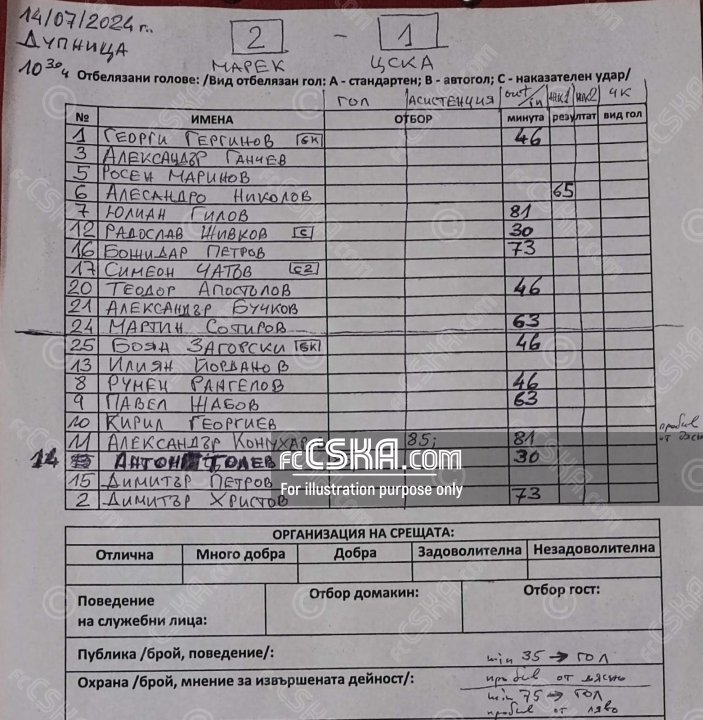 14/07/2024 г..
ДУПНИЦА
10 30 ч
2 - 1
МАРЕК ЦСКА
Отбелязани голове: /Вид отбелязан гол: А - стандартен; В - автогол; С - наказателен удар/
ГОЛ АСИСТЕНЦИЯ out/in ЖК1 ЖК2 ЧК
№ ИМЕНА ОТБОР минута резултат вид гол
1 ГЕОРГИ ГЕРГИНОВ GK 46
3 АЛЕКСАНДЪР ГАНЧЕВ
5 РОСЕН МАРИНОВ
6 АЛЕСАНДРО НИКОЛОВ 65
7 ЮЛИАН ГИЛОВ 81
12 РАДОСЛАВ ЖИВКОВ C 30
16 БОЖИДАР ПЕТРОВ 73
17 СИМЕОН ЧАТОВ C2
20 ТЕОДОР АПОСТОЛОВ 46
21 АЛЕКСАНДЪР БУЧКОВ
24 МАРТИН СОТИРОВ 63
25 БОЯН ЗАГОРСКИ GK 46
13 ИЛИЯН ЙОРДАНОВ
8 РУМЕН РАНГЕЛОВ 46
9 ПАВЕЛ ЖАБОВ 63
10 КИРИЛ ГЕОРГИЕВ
пробив
11 АЛЕКСАНДЪР 85; 81 от дясно
14 АНТОН ТОЛЕВ 30
15 ДИМИТЪР ПЕТРОВ
2 ДИМИТЪР ХРИСТОВ 73
fcCSKA.com
For illustration purpose only
ОРГАНИЗАЦИЯ НА СРЕЩАТА:
Отлична Много добра Добра Задоволителна Незадоволителна
Поведение на служебни лица: Отбор домакин: Отбор гост:
Публика /брой, поведение/: min 35 → ГОЛ
Охрана /брой, мнение за извършената дейност/: пробив от дясно
min 75 → ГОЛ
пробив от ляво